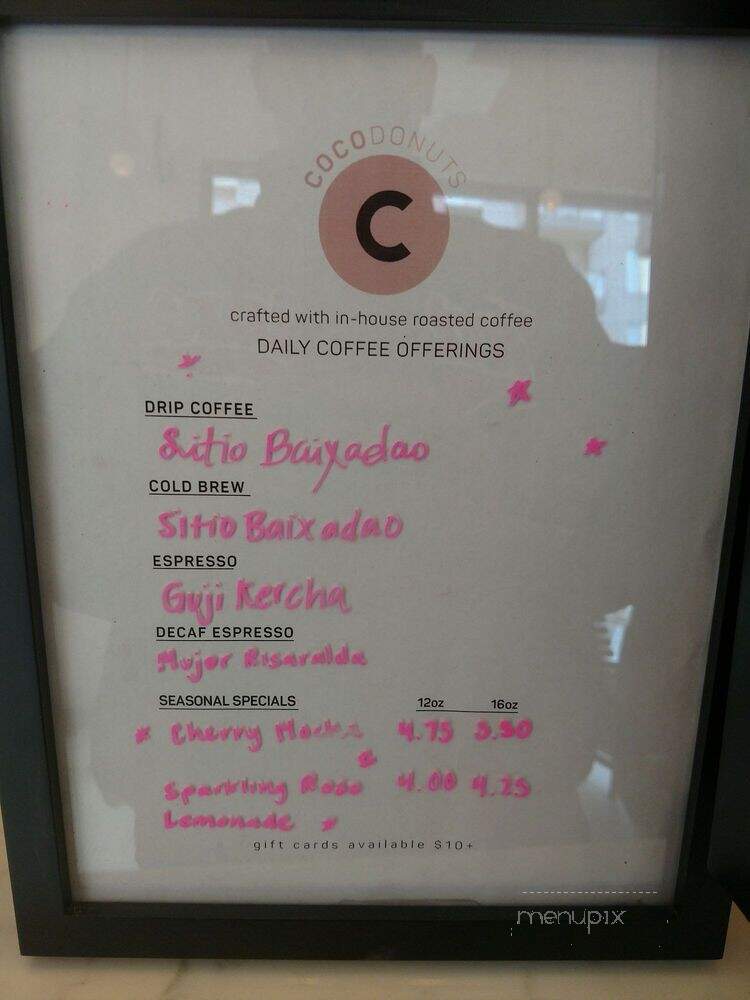 COCODONUTS
C
crafted with in-house roasted coffee
DAILY COFFEE OFFERINGS
DRIP COFFEE
Sitio Baixadao
COLD BREW
Sitio Baixadao
ESPRESSO
Guji Kercha
DECAF ESPRESSO
Mujer Risaralda
SEASONAL SPECIALS 12oz 16oz
Cherry Mocha 4.75 5.50
Sparkling Rose 4.00 4.25
Lemonade
gift cards available $10+
menupix